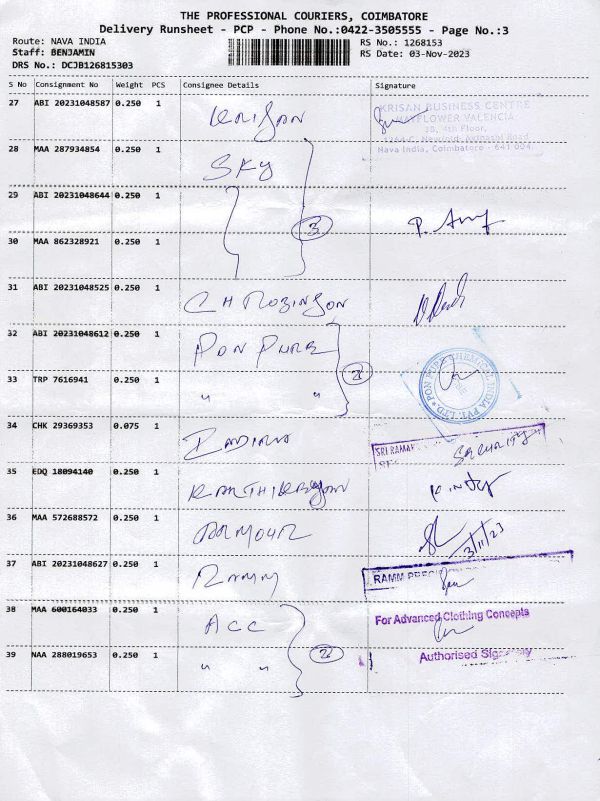 THE PROFESSIONAL COURIERS, COIMBATORE
Delivery Runsheet - PCP - Phone No.:0422-3505555 - Page No.:3
Route: NAVA INDIA RS No.: 1268153
Staff: BENJAMIN RS Date: 03-Nov-2023
DRS No.: DCJB126815303
S No Consignment No Weight PCS Consignee Details Signature
27 ABI 20231048587 0.250 1 KRISAN
KRISAN BUSINESS CENTRE
MAYFLOWER VALENCIA
3B, 4th Floor,
Avinashi Road
Nava India, Coimbatore - 641 004.
28 MAA 287934854 0.250 1 SKY
29 ABI 20231048644 0.250 1
3
30 MAA 862328921 0.250 1
31 ABI 20231048525 0.250 1 CH ROBINSON
32 ABI 20231048612 0.250 1 PON PURE
2
33 TRP 7616941 0.250 1 " "
PON PURE CHEMICAL INDIA PVT. LTD
34 CHK 29369353 0.075 1
SRI RAMA
SECURITY
35 EDQ 18094140 0.250 1 KARTHIKEYAN
36 MAA 572688572 0.250 1 ARMOUR
3/11/23
37 ABI 20231048627 0.250 1 RAMM
RAMM
38 MAA 600164033 0.250 1 ACC
For Advanced Clothing Concepts
2
39 NAA 288019653 0.250 1 " "
Authorised